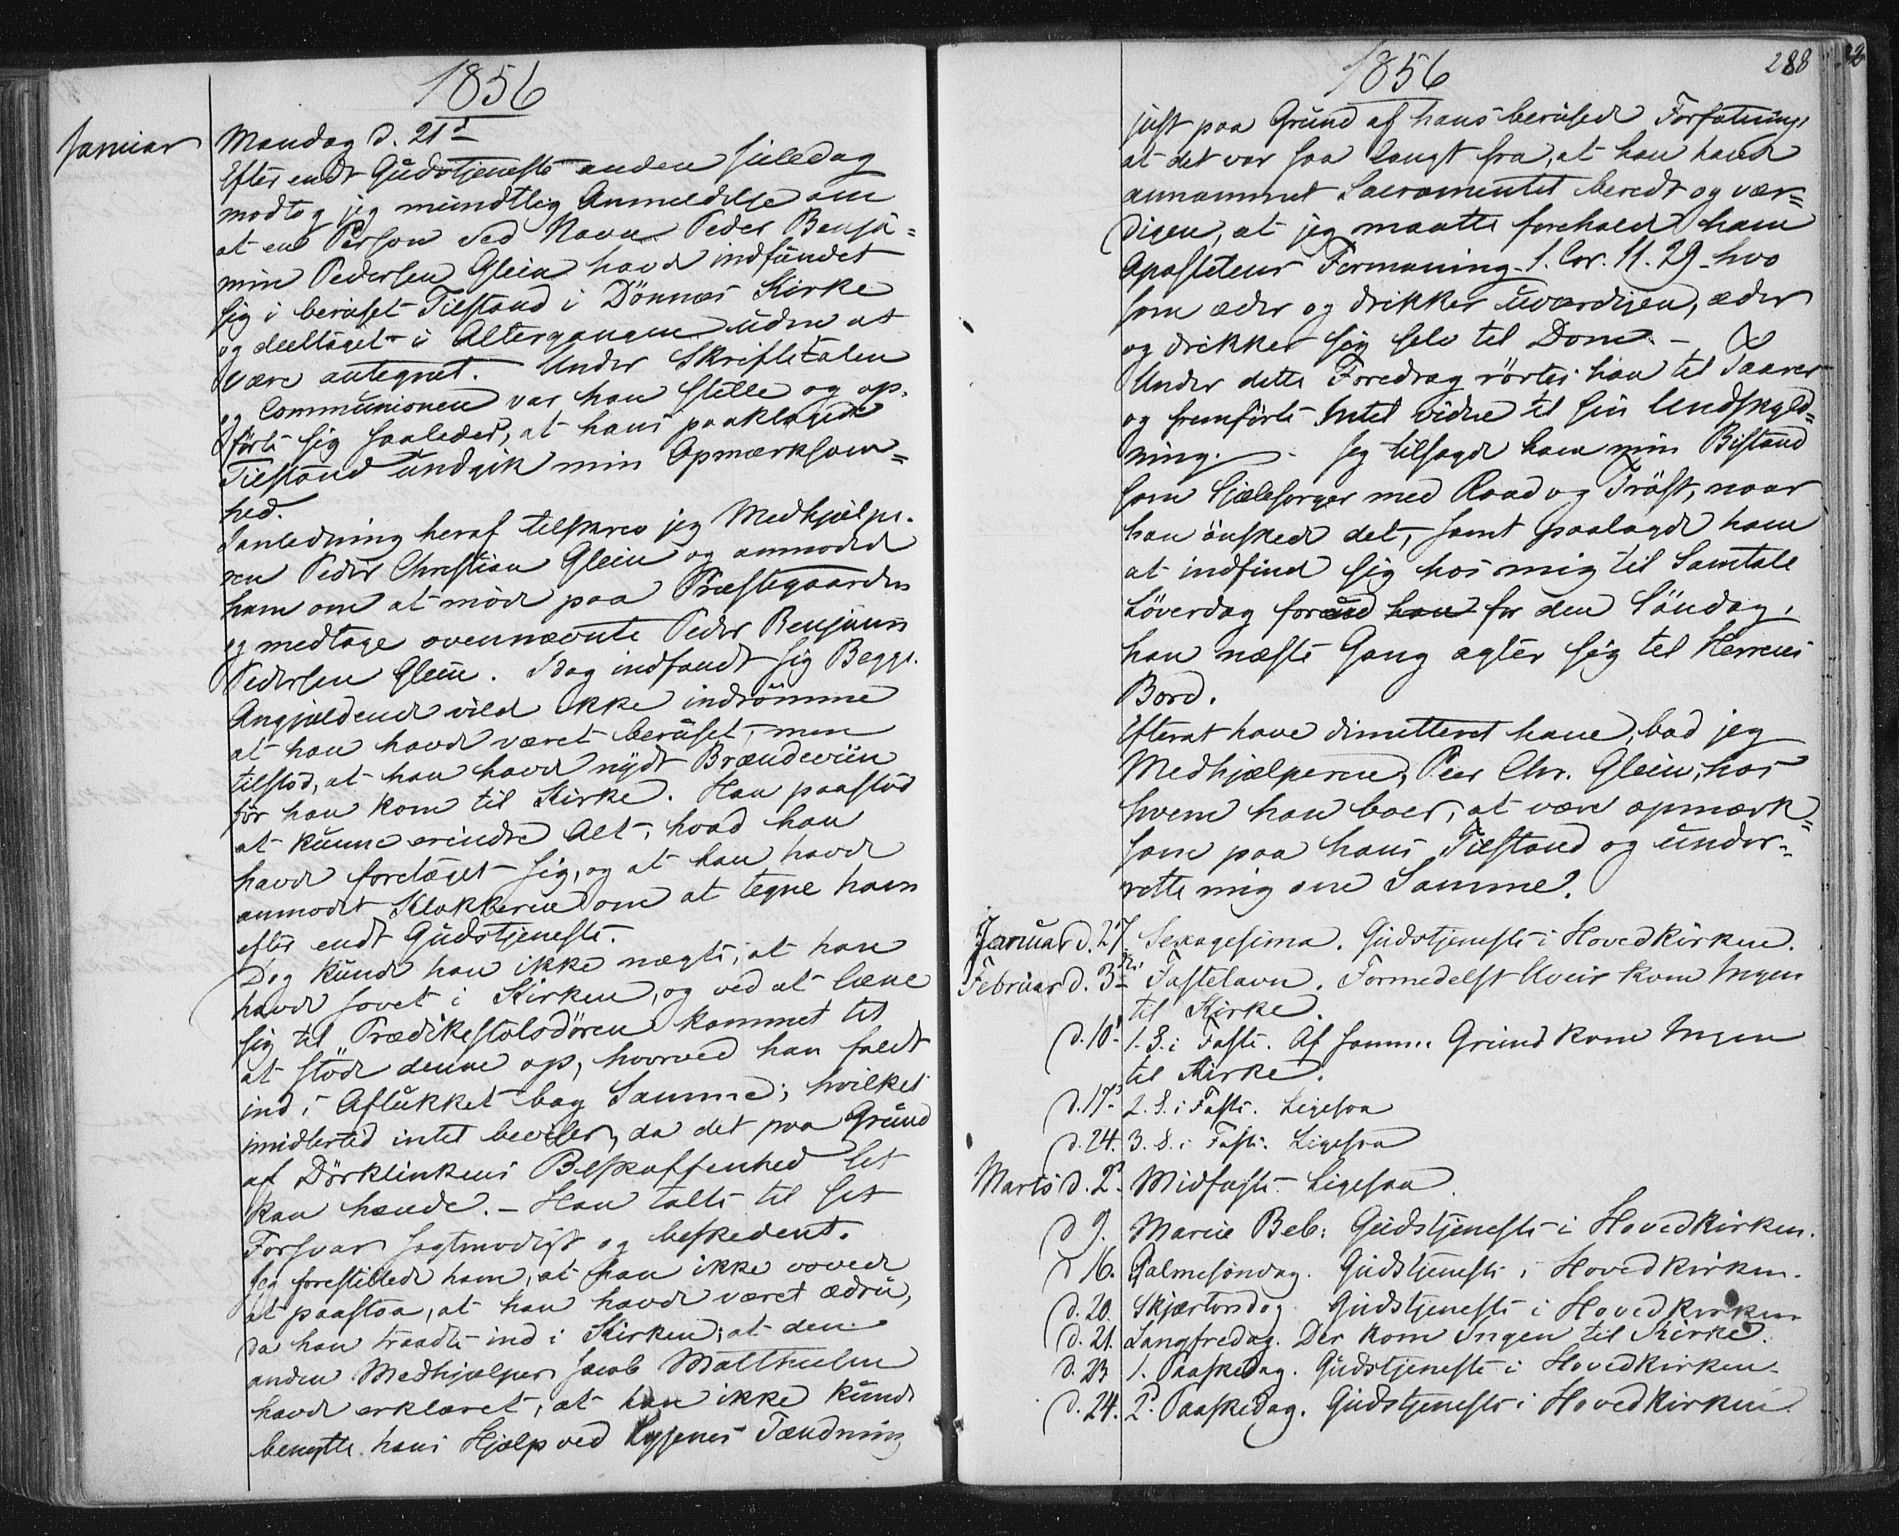 1856
Januar Mandag d. 21d
Efter endt Gudstjeneste anden Juledag
modtog jeg mundtlig Anmeldelse om
at en Person ved Navn Peder Benja=
min Pedersen Glein havde indfundet
sig i beruset Tilstand i Dönnæs Kirke
og deeltaget i Altergangen uden at
være antegnet. Under Skriftetalen
og Communionen var han stille og op-
förte sig saaledes, at hans paaklagede
Tilstand undgik min Opmærksom=
hed.
I anledning heraf tilskrev jeg Medhjælpe-
ren Peder Christian Glein og anmodede
ham om at möde paa Præstegaarden
og medtage ovennævnte Peder Benjamin
Pedersen Glein. Idag indfandt sig Begge.
Angjeldende vilde ikke indrömme
at han havde været beruset, men
tilstod, at han havde nydt Brændeviin
för han kom til Kirke. Han paastod
at kunne erindre Alt, hvad han
havde foretaget sig, og at han havde
anmodet Klokkeren om at tegne ham
efter endt Gudstjeneste.
Dog kunde han ikke nægte, at han
havde sovet i Kirken, og ved at læne
sig til Prædikestolsdören kommet til
at støde denne op, hvorved han faldt
ind i Aflukket bag Samme; hvilket
imidlertid intet beviser, da det paa Grund
af Dörklinkens Beskaffenhed let
kan hænde. – Han talte til sit
Forsvar sagtmodigt og beskedent.
Jeg forestillede ham, at han ikke vovede
at paastaa, at han havde været ædru,
da han traadte ind i Kirken; at den
anden Medhjælper Jacob
havde erklæret, at han ikke kunde
benytte hans Hjælp ved Lysenes Tænding
1856
288
just paa Grund af hans berusede Forfatning,
at det var saa langt fra, at han havde
annammet Sacramentet beredt og vær=
digen, at jeg maatte foreholde ham
Apostelens Formaning 1. Cor. 11. 29 - hvo
som æder og drikker uværdigen, æder
og drikker sig selv til Dom. –
Under dette Foredrag rörtes han til Taarer
og fremförte Intet videre til sin Undskyld=
ning. – Jeg tilsagde ham min Bistand
som Sjælesørger med Raad og Tröst, naar
han önskede det, samt paalagde ham
at indfinde sig hos mig til Samtale
Löverdag forud han for den Söndag,
han næste Gang agter sig til Herrens
Bord.
Efterat have dimitteret ham, bad jeg
Medhjælperen, Peder Chr. Glein, hos
hvem han boer, at være opmærk=
som paa hans Tilstand og under=
rette mig om Samme.
Januar d. 27. Sexagesima. Gudstjeneste i Hovedkirken.
Februar d. 3die Fastelavn. Formedelst Uveir kom Ingen
til Kirke.
d. 10. 1. S. i Faste. Af samme Grund kom Ingen
til Kirke.
d. 17. 2. S. i Faste. Ligesaa
d. 24. 3. S. i Faste. Ligesaa
Marts d. 2. Midfaste. Ligesaa.
d 9. Mariæ Beb: Gudstjeneste i Hovedkirken.
d 16. Palmesöndag. Gudstjeneste i Hovedkirken.
d. 20. Skjærtorsdag. Gudstjeneste i Hovedkirken
d. 21. Langfredag. Der kom Ingen til Kirke.
d. 23 1. Paaskedag. Gudstjeneste i Hovedkirken.
d. 24. 2. Paaskedag. Gudstjeneste i Hovedkirken